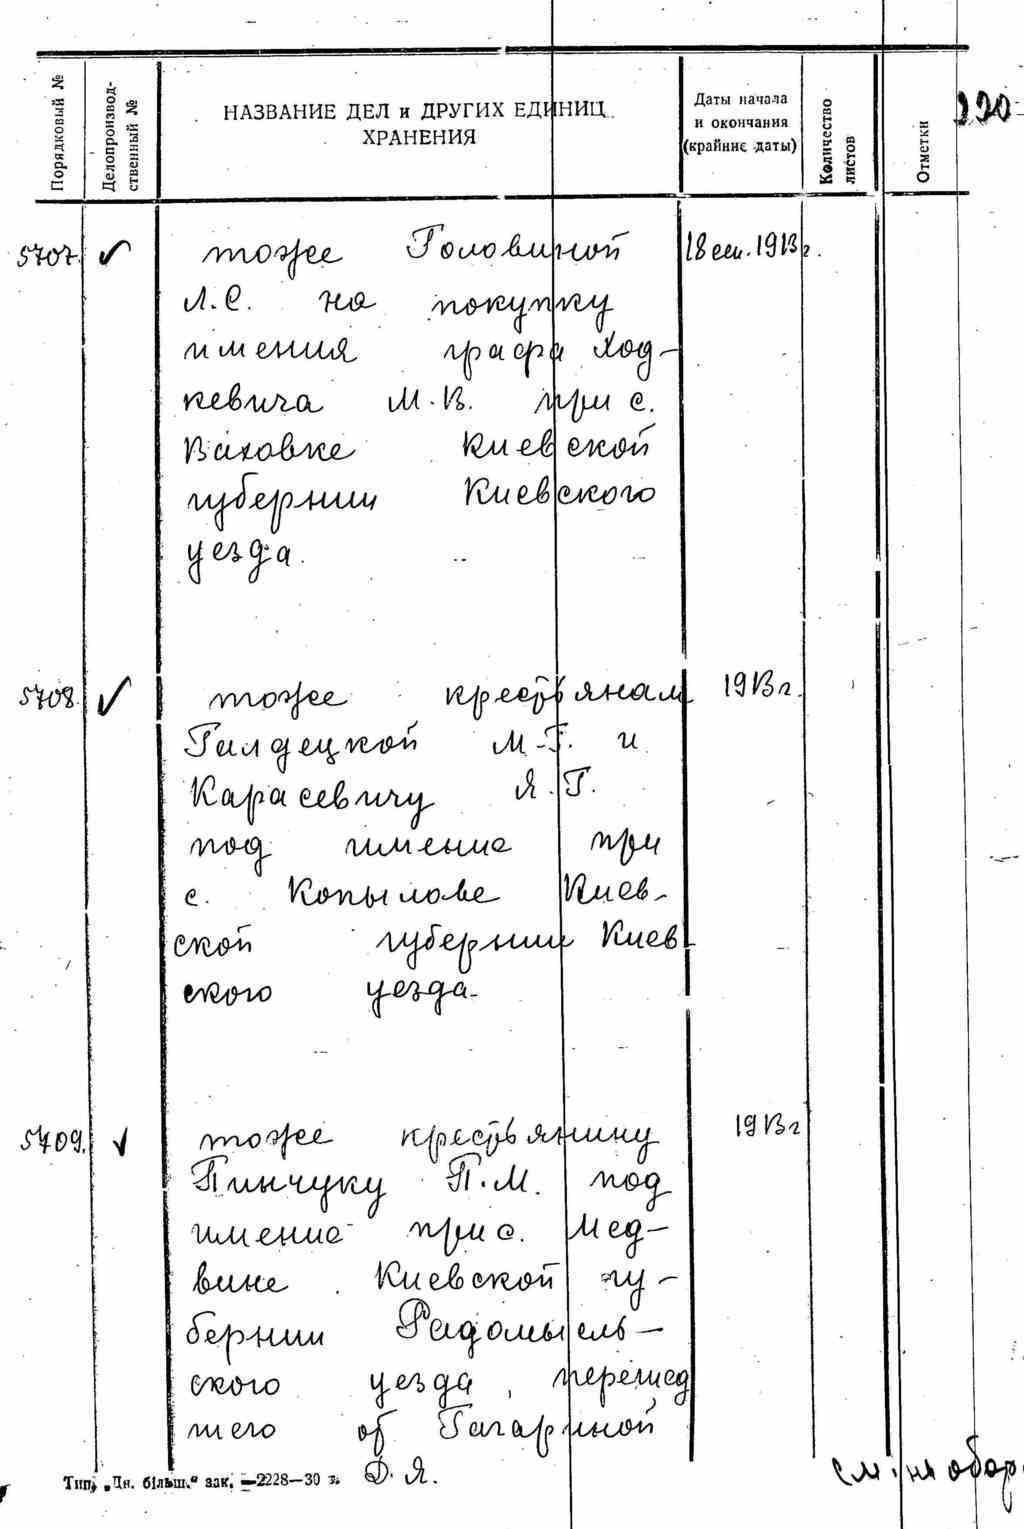 220
Порядковый №
Делопроизвод-
ственный №
НАЗВАНИЕ ДЕЛ и ДРУГИХ ЕДИНИЦ
ХРАНЕНИЯ
Даты начала
и окончания
(крайние даты)
Количество
листов
Отметки
5707. ✓ тоже Головиной 18 сен. 1913 г.
Л. С. на покупку
имения графа Ход-
кевича М. В. при с.
Ваховке Киевской
губернии Киевского
уезда.
5708. ✓ тоже крестьянам 1913 г.
Гилдецкой М. Г. и
Карасевичу Я. Г.
под имение при
с. Копылове Киев-
ской губернии Киев
ского уезда.
5709. ✓ тоже крестьянину 1913 г
Пинчуку П. М. под
имение при с. Мед-
вине Киевской гу-
бернии Радомысль-
ского уезда, перешед
шего от Гагариной
Д. Я.
Тип. „Дн. більш.“ зак. —2228—30 т.
см. на обор.